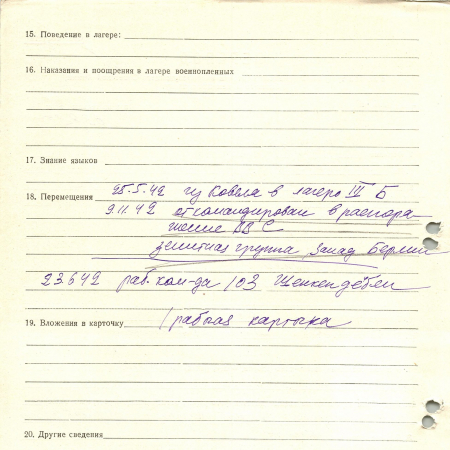 15. Поведение в лагере:
16. Наказания и поощрения в лагере военнопленных
17. Знание языков
18. Перемещения 25.5.42 из Ковеля в лагерь III Б
9.11.42 откомандирован в распоря
жение ВВС
зенитная группа, Запад Берлин
23642 раб. ком-да 103
19. Вложения в карточку 1 рабочая карточка
20. Другие сведения